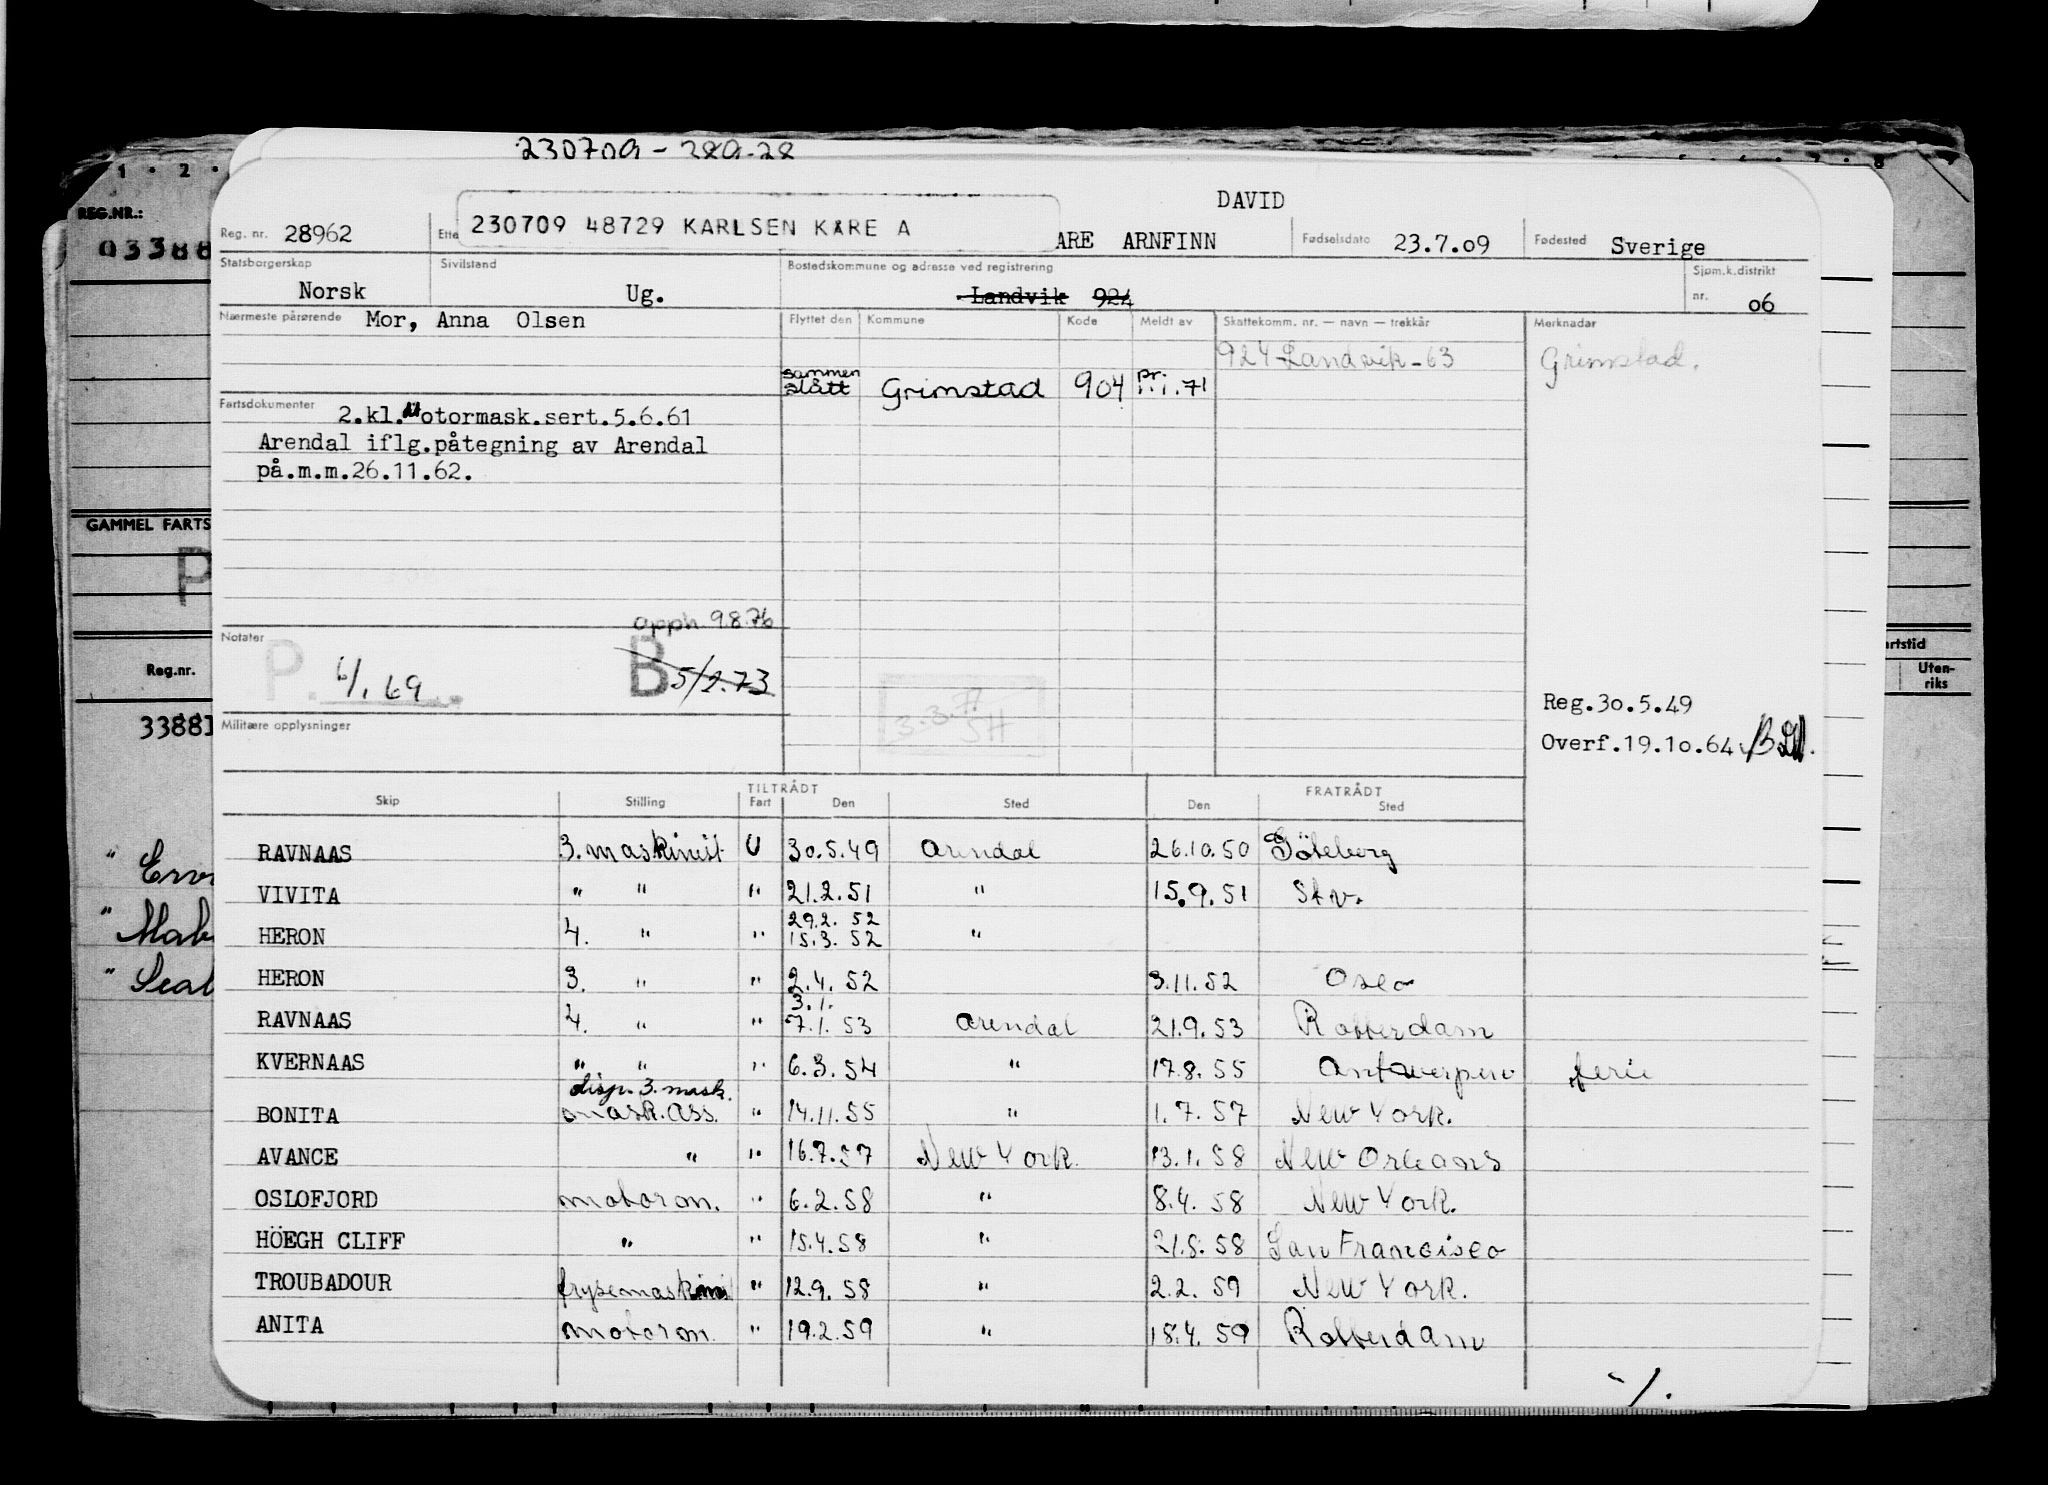 1 · 2 ·
230709 - 289.28
REG.NR.:
03388
DAVID
Reg. nr. 28962 Ette 230709 48729 KARLSEN KÅRE A ARE ARNFINN Fødselsdato 23.7.09 Fødested Sverige
Statsborgerskap Sivilstand Bostedskommune og adresse ved registrering Sjøm.k.distrikt
Norsk Ug. Landvik 924 nr. 06
Nærmeste pårørende Mor, Anna Olsen Flyttet den Kommune Kode Meldt av Skattekomm. nr. — navn — trekkår Merknader
924-Landvik-63 Grimstad.
sammen slått Grimstad 904 pr. 1.1.71
Fartsdokumenter 2.kl.Motormask.sert.5.6.61
Arendal iflg.påtegning av Arendal
på.m.m.26.11.62.
GAMMEL FARTS
P
opph. 9.8.76
Notater P. 6/1.69 B 5/2.73
Reg.nr.
artstid
Uten-
riks
3.3.71
SH
Reg.30.5.49
33881
Militære opplysninger
Overf.19.10.64
TILTRÅDT FRATRÅDT
Skip Stilling Fart Den Sted Den Sted
RAVNAAS 3. maskinist U 30.5.49 Arendal 26.10.50 Göteborg
VIVITA " " " 21.2.51 " 15.9.51 Stv.
29.2.52
HERON 4. " " 15.3.52 "
HERON 3. " " 2.4.52 3.11.52 Oslo
3.1.
RAVNAAS 4. " " 7.1.53 Arendal 21.9.53 Rotterdam
KVERNAAS " " " 6.3.54 " 17.8.55 Antwerpen ferie
disp. 3. mask.
BONITA mask. ass. " 14.11.55 " 1.7.57 New York.
AVANCE " " 16.7.57 New York. 13.1.58 New Orleans
OSLOFJORD motorm. " 6.2.58 " 8.4.58 New York.
HÖEGH CLIFF " " 15.4.58 " 21.8.58 San Francisco
TROUBADOUR frysemaskinist " 12.9.58 " 2.2.59 New York.
ANITA motorm. " 19.2.59 " 18.4.59 Rotterdam